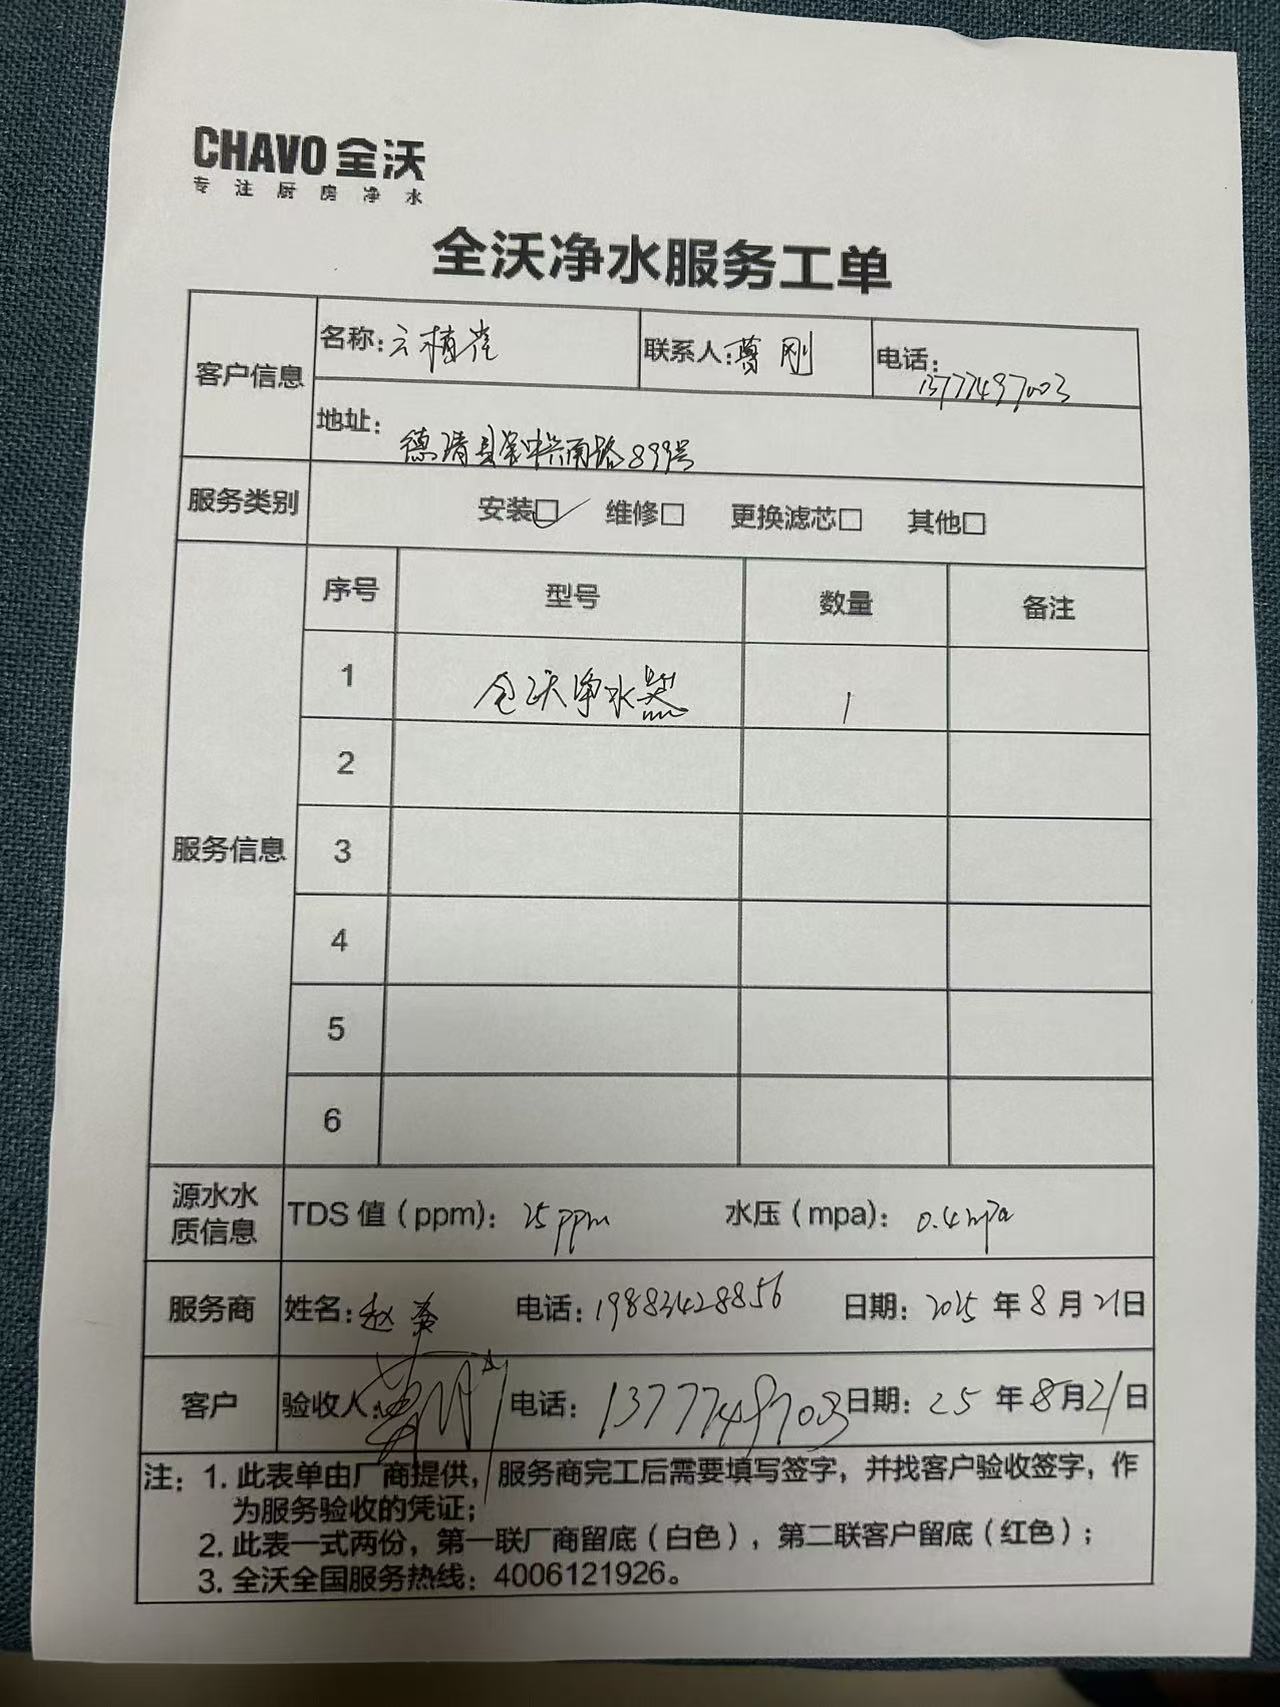 CHAVO 全沃
专注厨房净水
全沃净水服务工单
客户信息 名称: 联系人: 刚 电话: 13777497003
地址: 德清县 南路899号
服务类别 安装☑ 维修□ 更换滤芯□ 其他□
服务信息 序号 型号 数量 备注
1 全沃净水器 1
2
3
4
5
6
源水水质信息 TDS 值(ppm): 25ppm 水压(mpa): 0.4mpa
服务商 姓名: 赵 电话: 19883428856 日期: 2025 年 8 月 21日
客户 验收人: 电话: 13777497003 日期: 25 年 8月 21日
注: 1. 此表单由厂商提供，服务商完工后需要填写签字，并找客户验收签字，作
为服务验收的凭证；
2. 此表一式两份，第一联厂商留底（白色），第二联客户留底（红色）；
3. 全沃全国服务热线: 4006121926。